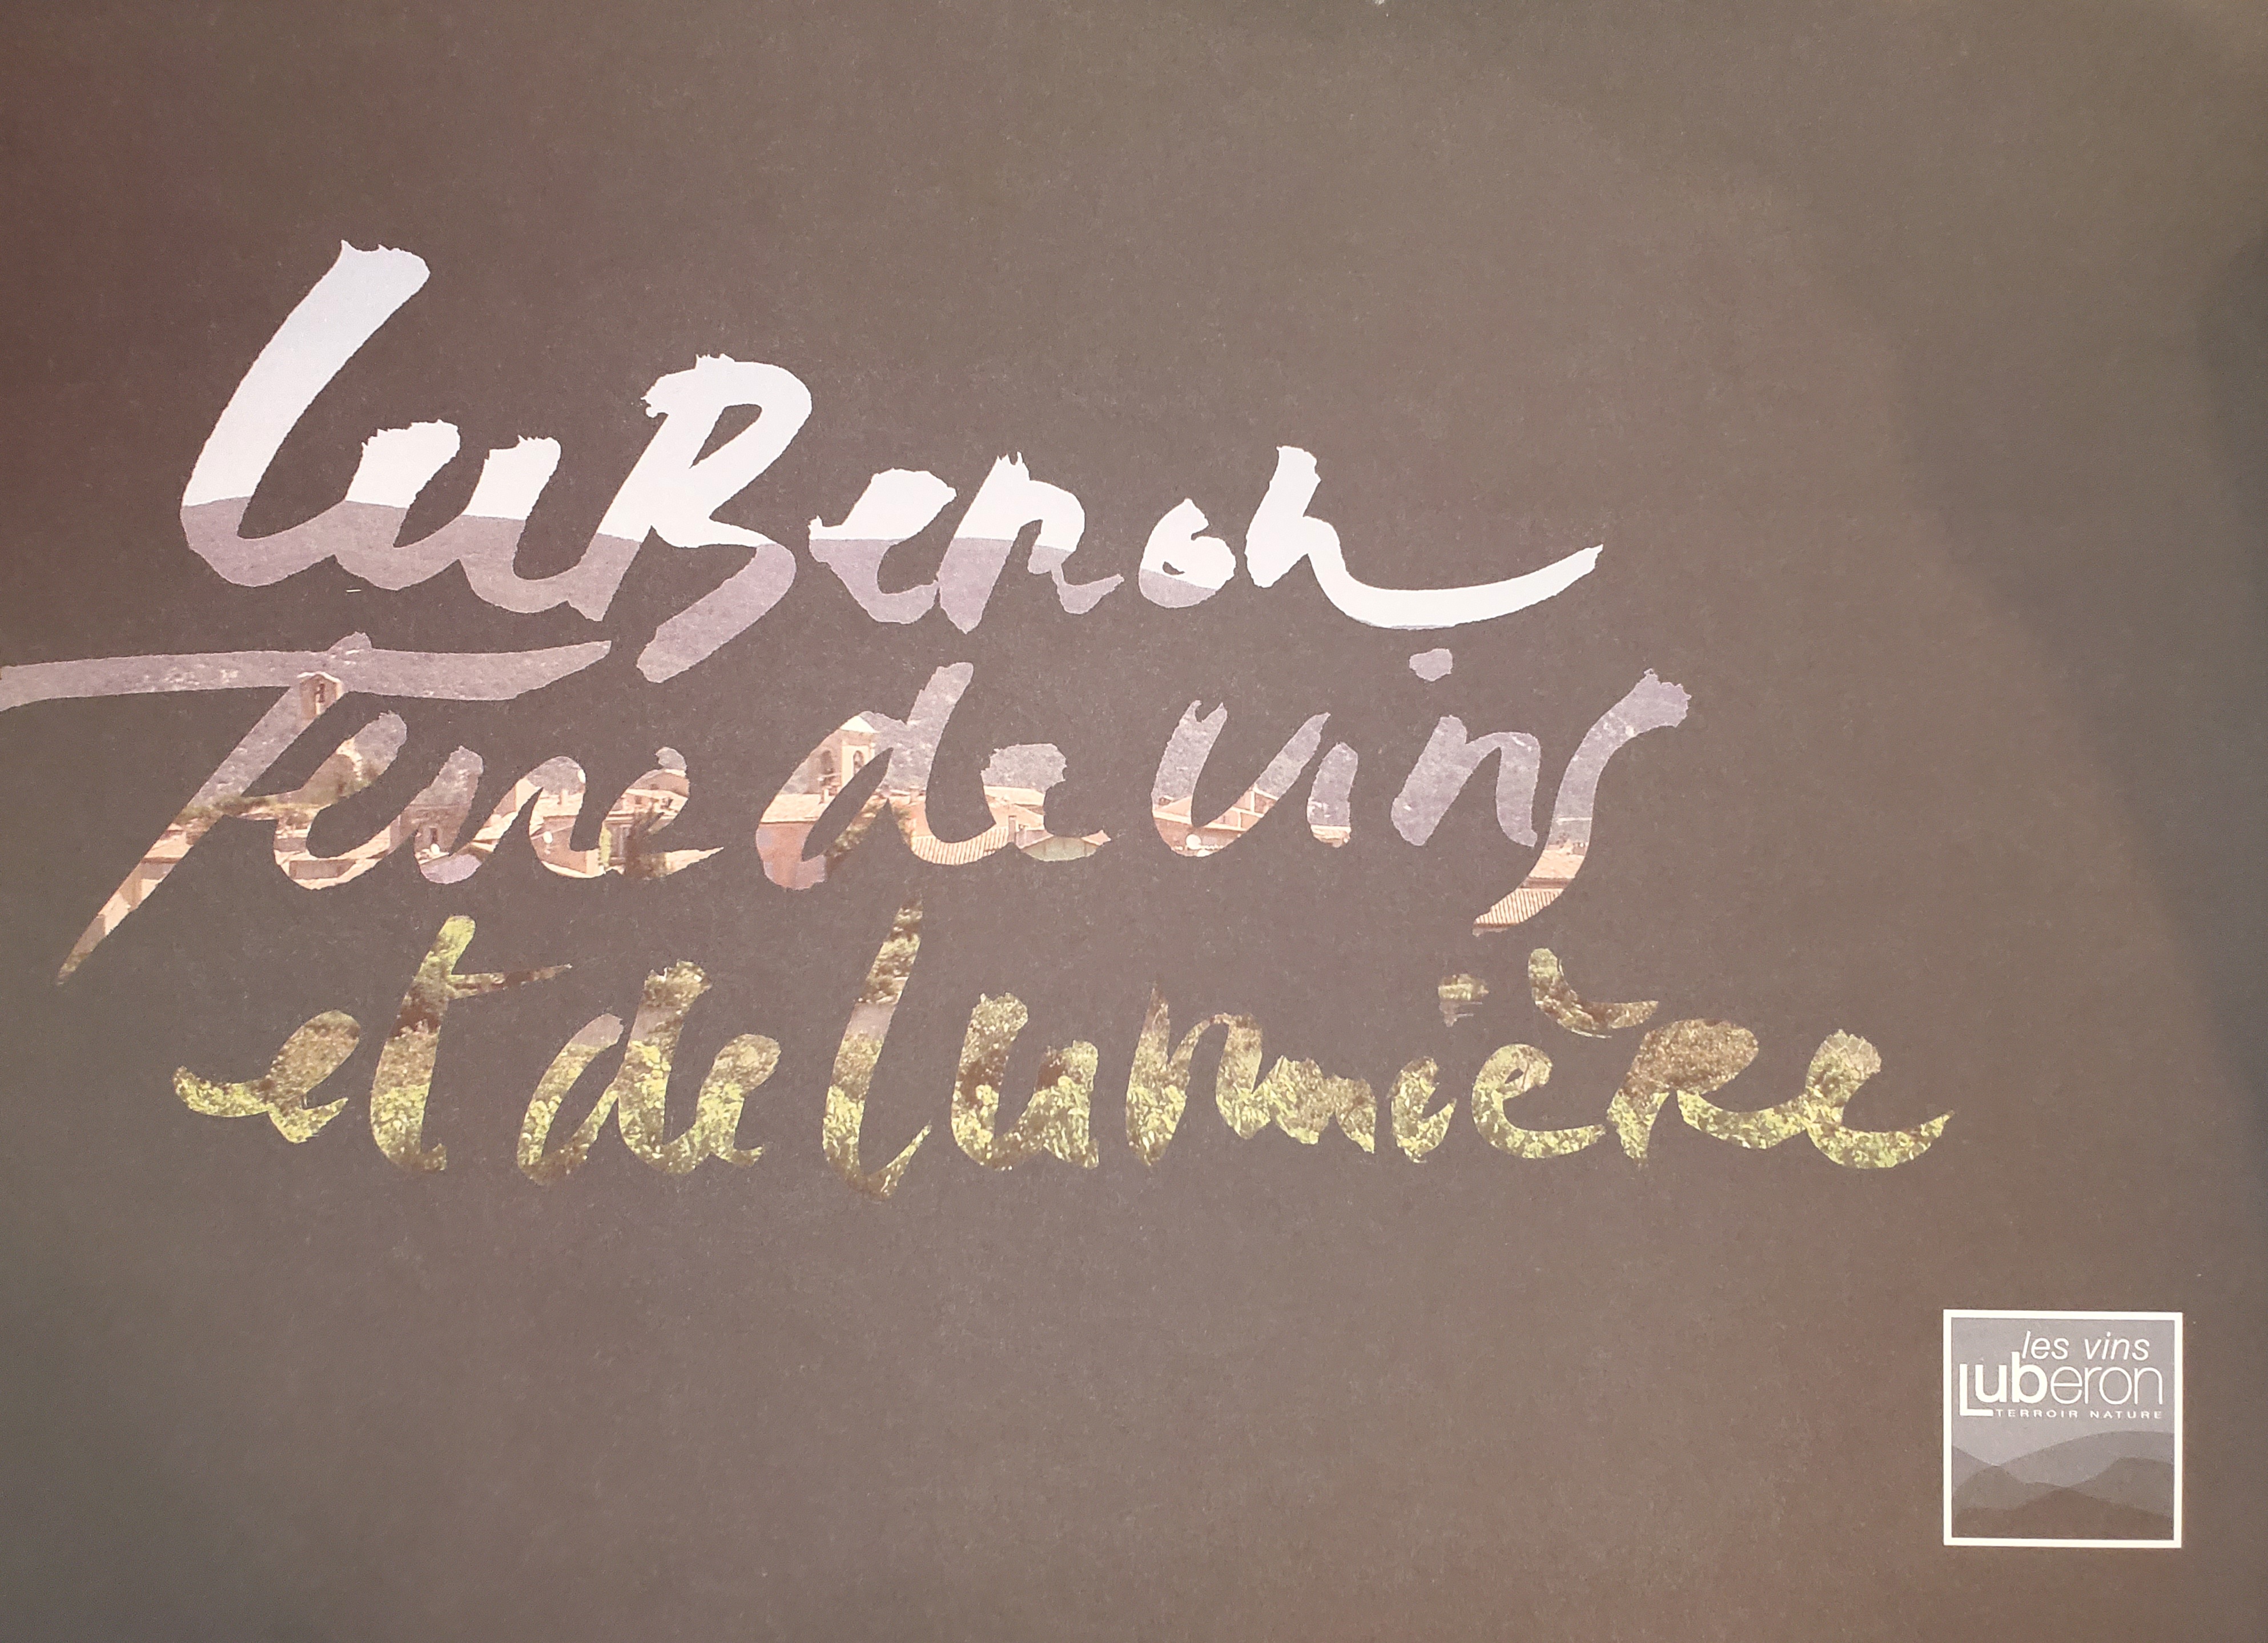 LuBeron
Terre de vins
et de lumière
les vins
Luberon
TERROIR NATURE